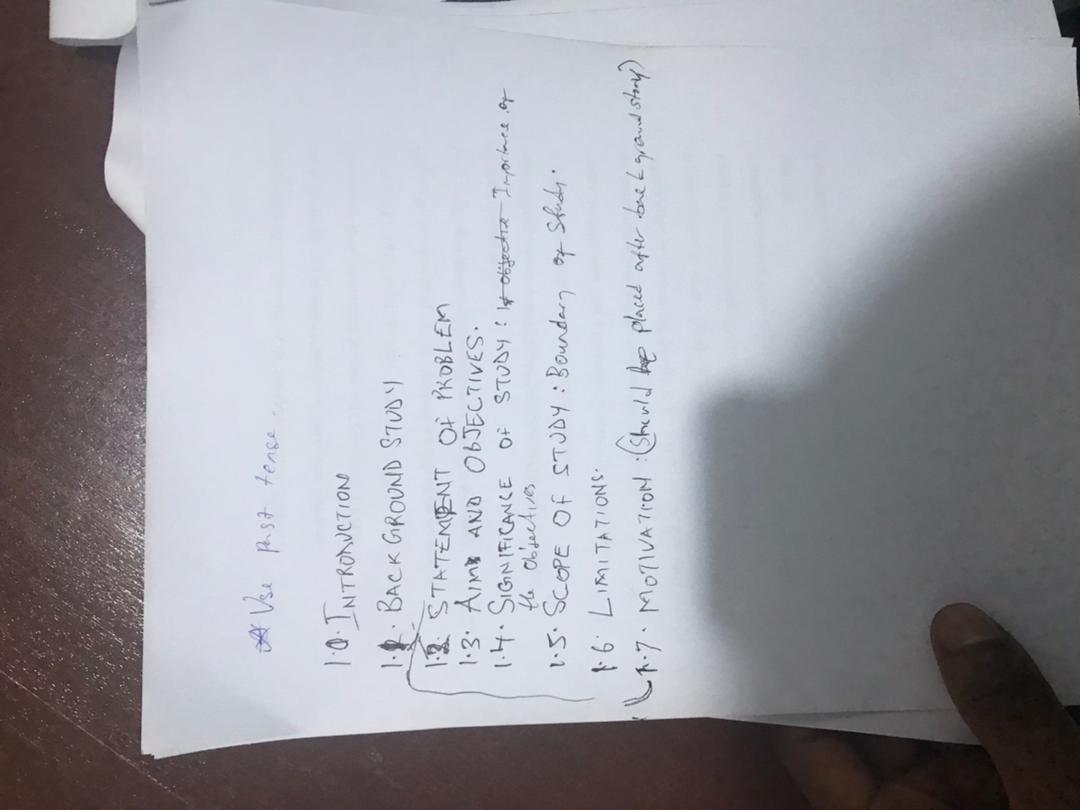 Use past tense.
1.0. INTRODUCTION
1.1. BACKGROUND STUDY
1.2. STATEMENT OF PROBLEM
1.3. AIMS AND OBJECTIVES.
1.4. SIGNIFICANCE OF STUDY: Importance of
the Objectives
1.5. SCOPE OF STUDY: Boundary of Study.
1.6 LIMITATIONS.
1.7. MOTIVATION: (Should be placed after background story)